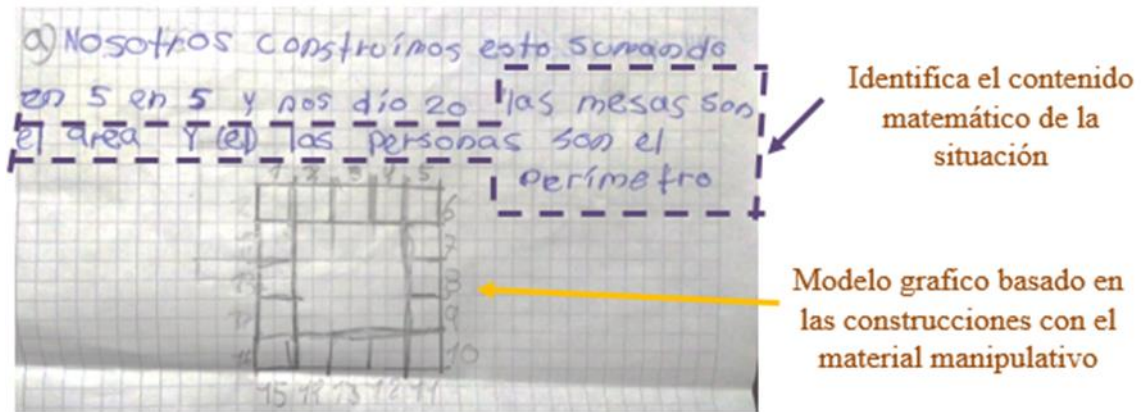 a) Nosotros construímos esto sumando
en 5 en 5 y nos dío 20 las mesas son
el area Y (el) las personas son el
perímetro
1 2 3 4 5
6
7
8
9
10
15 14 13 12 11
Identifica el contenido
matemático de la
situación
Modelo grafico basado en
las construcciones con el
material manipulativo